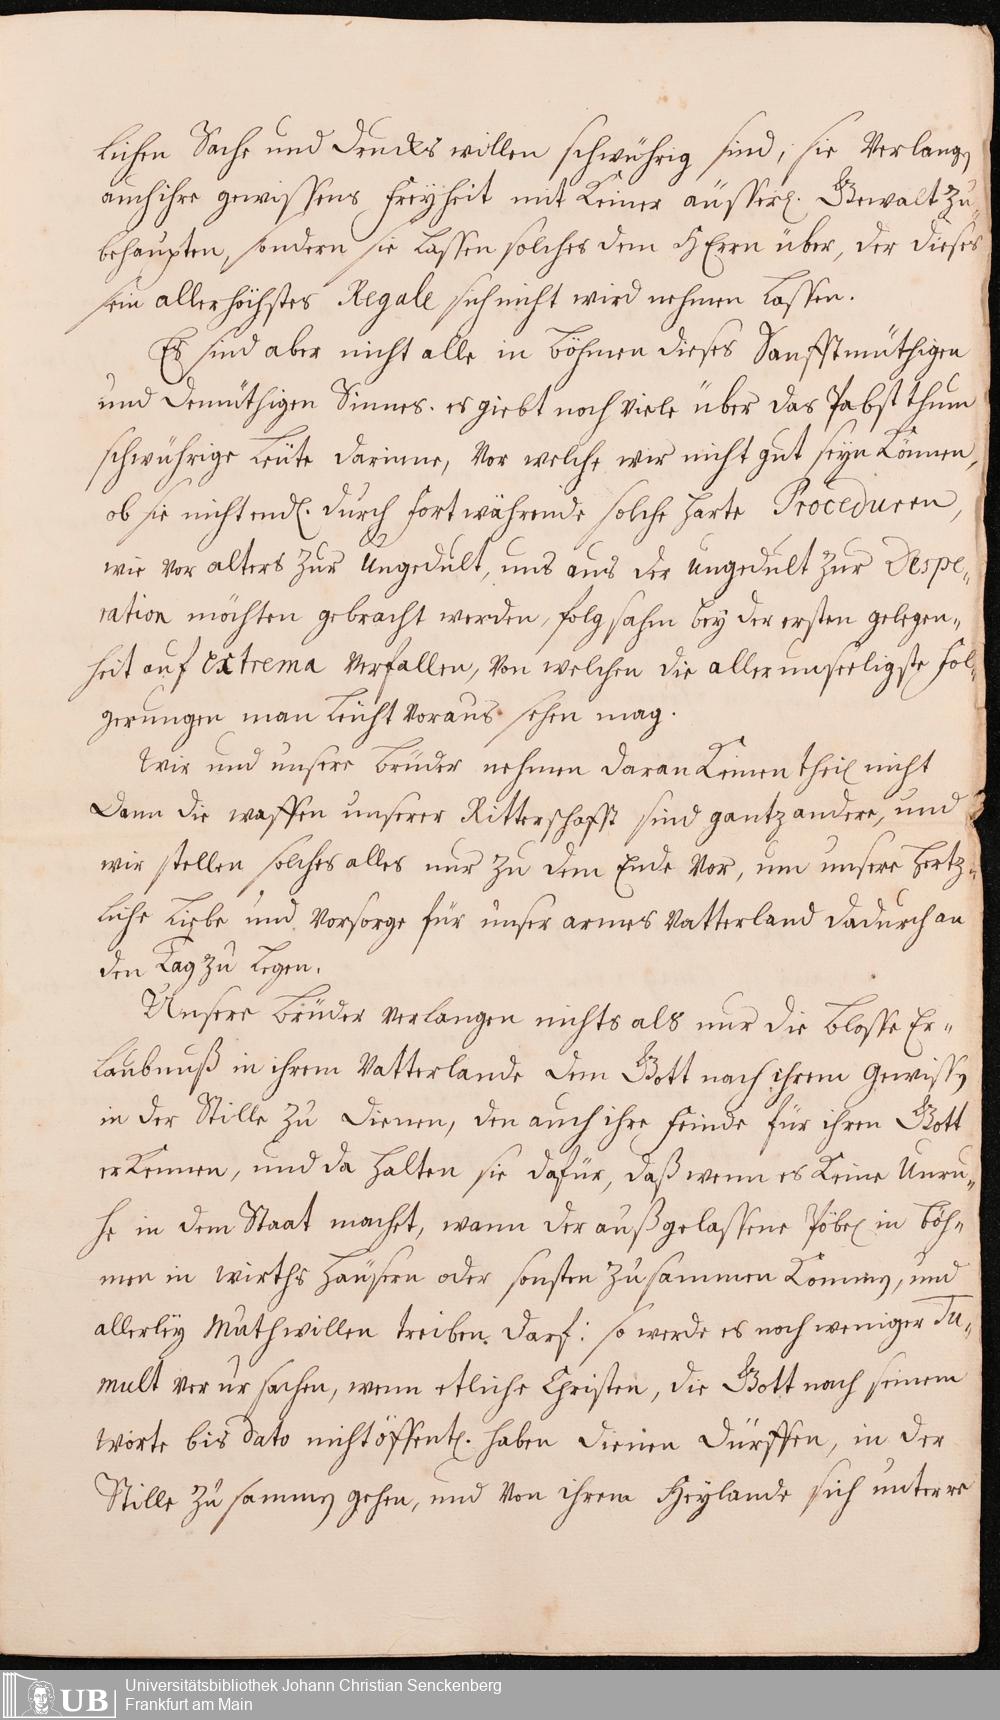 lichen Sache und Druckes willen schwührig sind, sie verlangen
auch ihre gewissens Freyheit mit keiner äusserl. Gewalt zu
behaupten, sondern sie lassen solches dem HErrn über, der dieses
sein allerhöchstes Regale sich nicht wird nehmen lassen.
Es sind aber nicht alle in Böhmen dieses Sanfftmüthigen
und demüthigen Sinnes. es giebt noch viele über das Pabstthum
schwührige Leüte darinne, vor welche wir nicht gut seyn können,
ob sie nicht endl. durch fortwährende solche harte Proceduren,
wie vor alters zur Ungedult, und aus der Ungedult zur Despe-
ration möchten gebracht werden, folgsahm bey der ersten gelegen-
heit auf extrema verfallen, von welchen die allerunseeligste Fol-
gerungen man leicht voraus sehen mag.
Wir und unsere Brüder nehmen daran keinen theil nicht
Dann die waffen unserer Ritterschafft sind gantz andere, und
wir stellen solches alles nur zu dem Ende vor, um unsere hertz-
liche Liebe und Vorsorge für unser armes Vatterland dadurch an
den Tag zu legen.
Unsere Brüder verlangen nichts als nur die blosse Er-
laubnuß in ihrem Vatterlande dem Gott nach ihrem Gewissen
in der Stille zu dienen, den auch ihre Feinde für ihren Gott
erkennen, und da halten sie dafür, daß wenn es keine Unru-
he in dem Staat machet, wann der außgelassene Pöbel in Böh-
men in wirths Häusern oder sonsten zusammen kommen, und
allerley Muthwillen treiben darf: so werde es noch weniger Tu-
mult verursachen, wenn etliche Christen, die Gott nach seinem
Worte bis dato nicht öffentl. haben dienen dürffen, in der
Stille zusammen gehen, und von ihrem Heylande sich unterre
Universitätsbibliothek Johann Christian Senckenberg
Frankfurt am Main
UB